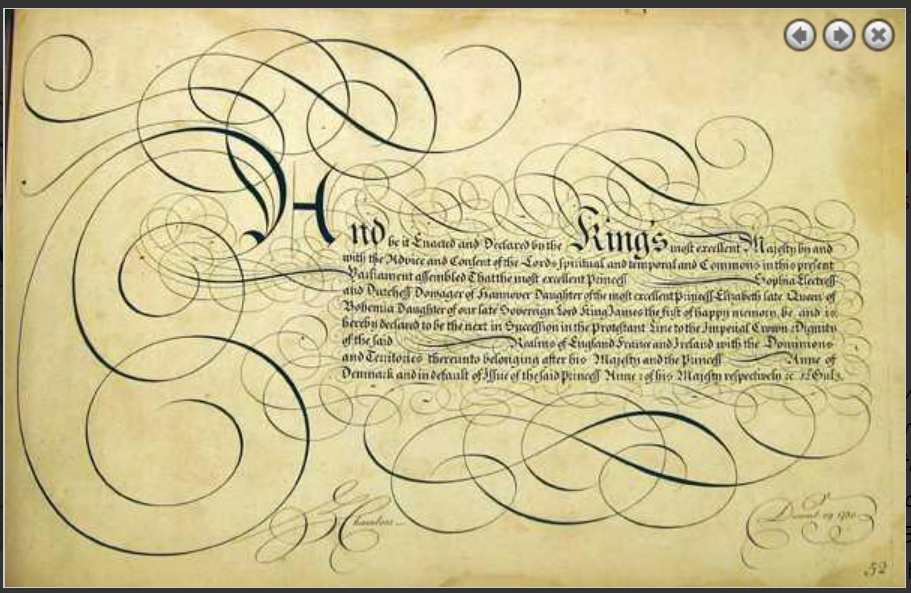 And be it Enacted and Declared by the King's most excellent Majesty by and
with the Advice and Consent of the Lords spiritual and temporal and Commons in this present
Parliament assembled That the most excellent Princess Sophia Electress
and Dutchess Dowager of Hannover Daughter of the most excellent Princess Elizabeth late Queen of
Bohemia Daughter of our late Sovereign Lord King James the first of happy memory be and is
hereby declared to be the next in Succession in the Protestant Line to the Imperial Crown & Dignity
of the said Realms of England France and Ireland with the Dominions
and Territories thereunto belonging after his Majesty and the Princess Anne of
Denmark and in default of Issue of the said Princess Anne & of his Majesty respectively &c. 12 Gul 3.
Z Chambers
Decemb. 29 1730
52